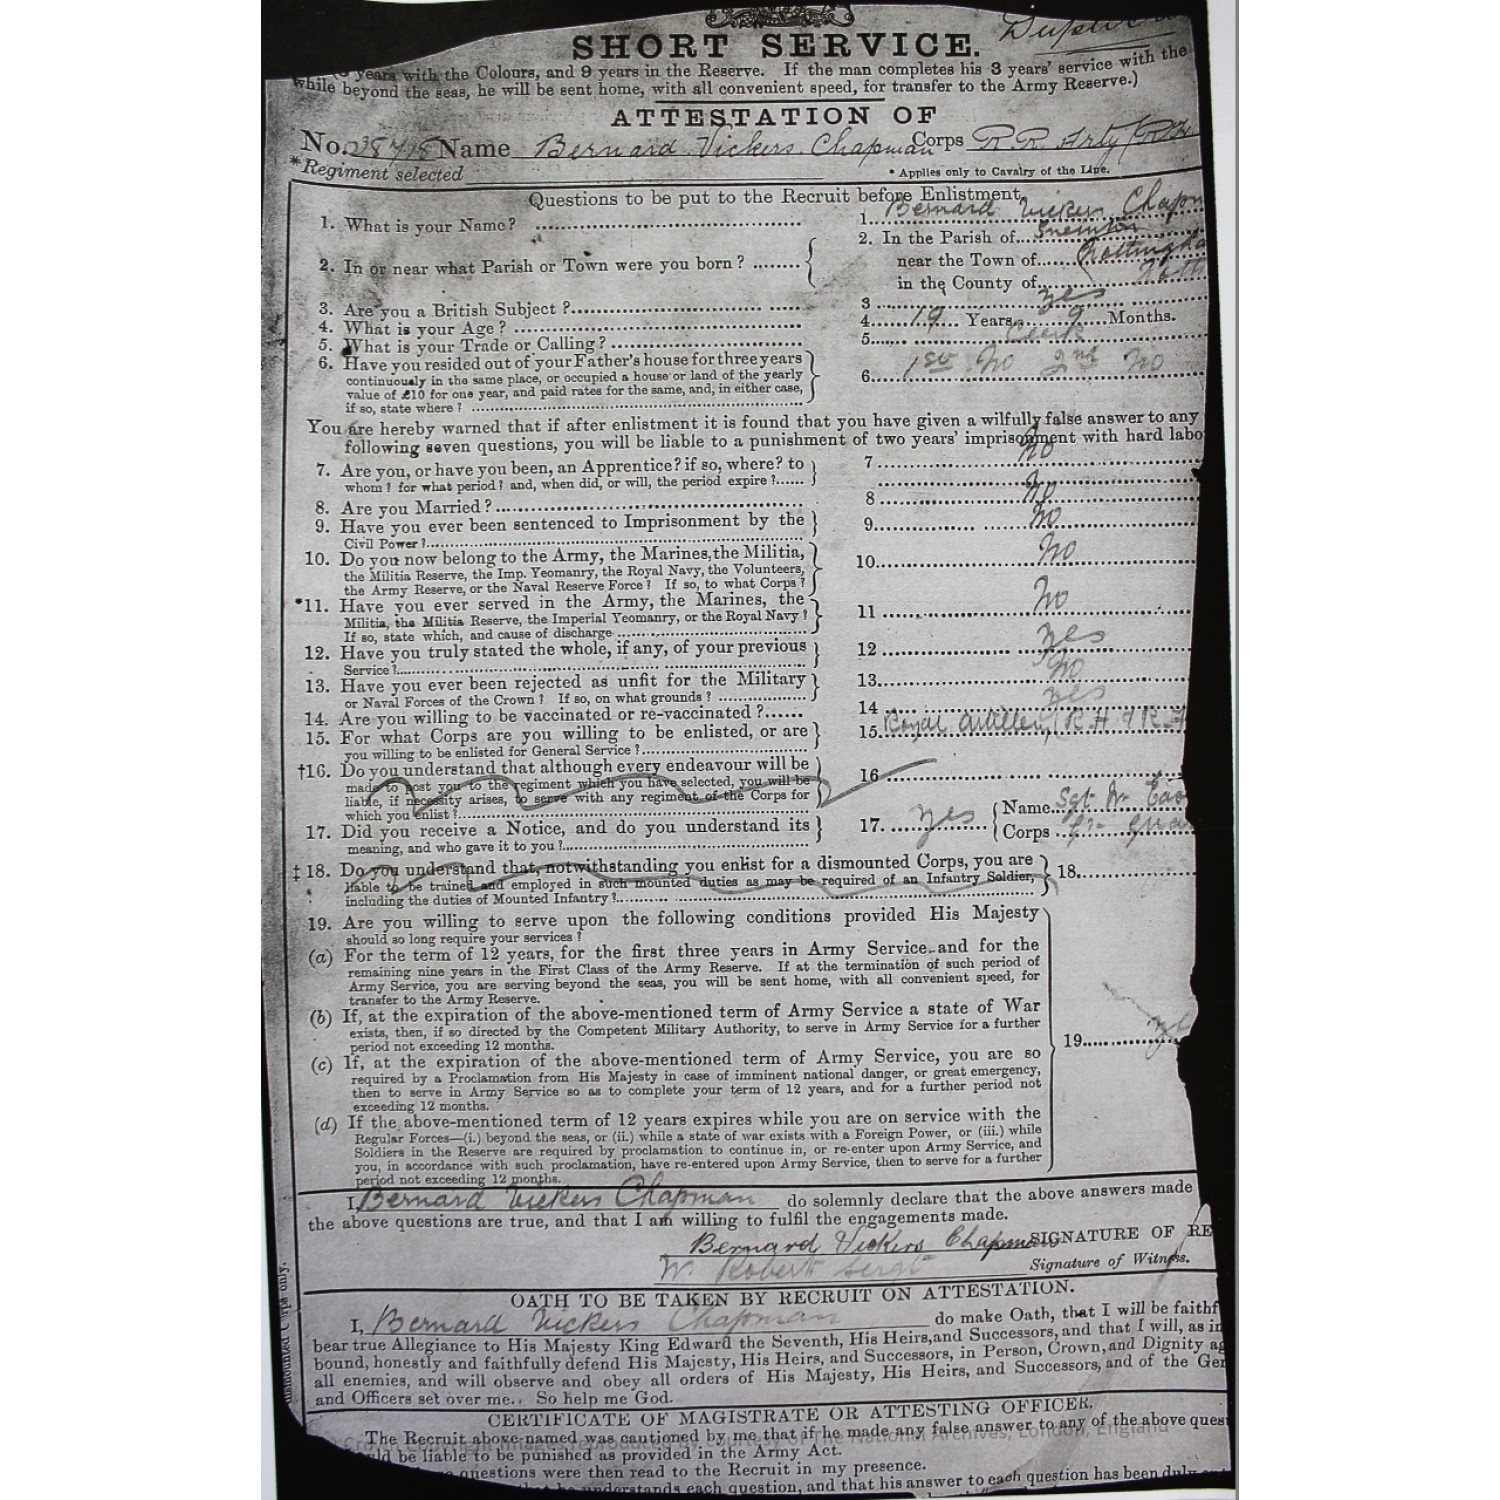 SHORT SERVICE.
years with the Colours, and 9 years in the Reserve. If the man completes his 3 years' service with the
while beyond the seas, he will be sent home, with all convenient speed, for transfer to the Army Reserve.)
ATTESTATION OF
No. Name Bernard Vickers Chapman Corps
*Regiment selected
* Applies only to Cavalry of the Line.
Questions to be put to the Recruit before Enlistment.
1. What is your Name? 1. Bernard Vickers Chapm
2. In or near what Parish or Town were you born? 2. In the Parish of Sneinton
near the Town of Nottingha
in the County of Notts
3. Are you a British Subject? 3 Yes
4. What is your Age? 4. 19 Years 9 Months.
5. What is your Trade or Calling? 5. Clerk
6. Have you resided out of your Father's house for three years
continuously in the same place, or occupied a house or land of the yearly
value of £10 for one year, and paid rates for the same, and, in either case,
if so, state where? 6. 1st No 2nd No
You are hereby warned that if after enlistment it is found that you have given a wilfully false answer to any
following seven questions, you will be liable to a punishment of two years' imprisonment with hard labo
7. Are you, or have you been, an Apprentice? if so, where? to 7 No
whom? for what period? and, when did, or will, the period expire?
8. Are you Married? 8 No
9. Have you ever been sentenced to Imprisonment by the 9. No
Civil Power?
10. Do you now belong to the Army, the Marines, the Militia, 10. No
the Militia Reserve, the Imp. Yeomanry, the Royal Navy, the Volunteers,
the Army Reserve, or the Naval Reserve Force? If so, to what Corps?
*11. Have you ever served in the Army, the Marines, the 11 No
Militia, the Militia Reserve, the Imperial Yeomanry, or the Royal Navy?
If so, state which, and cause of discharge
12. Have you truly stated the whole, if any, of your previous 12 Yes
Service?
13. Have you ever been rejected as unfit for the Military 13. No
or Naval Forces of the Crown? If so, on what grounds?
14. Are you willing to be vaccinated or re-vaccinated? 14 Yes
15. For what Corps are you willing to be enlisted, or are 15. Royal Artillery (R.H & R.F
you willing to be enlisted for General Service?
†16. Do you understand that although every endeavour will be 16
made to post you to the regiment which you have selected, you will be
liable, if necessity arises, to serve with any regiment of the Corps for
which you enlist?
17. Did you receive a Notice, and do you understand its 17. Yes Name Sgt
meaning, and who gave it to you? Corps
‡18. Do you understand that, notwithstanding you enlist for a dismounted Corps, you are 18.
liable to be trained and employed in such mounted duties as may be required of an Infantry Soldier,
including the duties of Mounted Infantry?
19. Are you willing to serve upon the following conditions provided His Majesty
should so long require your services?
(a) For the term of 12 years, for the first three years in Army Service and for the
remaining nine years in the First Class of the Army Reserve. If at the termination of such period of
Army Service, you are serving beyond the seas, you will be sent home, with all convenient speed, for
transfer to the Army Reserve.
(b) If, at the expiration of the above-mentioned term of Army Service a state of War
exists, then, if so directed by the Competent Military Authority, to serve in Army Service for a further
period not exceeding 12 months. 19. Ye
(c) If, at the expiration of the above-mentioned term of Army Service, you are so
required by a Proclamation from His Majesty in case of imminent national danger, or great emergency,
then to serve in Army Service so as to complete your term of 12 years, and for a further period not
exceeding 12 months.
(d) If the above-mentioned term of 12 years expires while you are on service with the
Regular Forces—(i.) beyond the seas, or (ii.) while a state of war exists with a Foreign Power, or (iii.) while
Soldiers in the Reserve are required by proclamation to continue in, or re-enter upon Army Service, and
you, in accordance with such proclamation, have re-entered upon Army Service, then to serve for a further
period not exceeding 12 months.
I, Bernard Vickers Chapman do solemnly declare that the above answers made
the above questions are true, and that I am willing to fulfil the engagements made.
Bernard Vickers Chapman SIGNATURE OF RE
W. Robert Sergt Signature of Witness.
OATH TO BE TAKEN BY RECRUIT ON ATTESTATION.
I, Bernard Vickers Chapman do make Oath, that I will be faithf
bear true Allegiance to His Majesty King Edward the Seventh, His Heirs, and Successors, and that I will, as in
bound, honestly and faithfully defend His Majesty, His Heirs, and Successors, in Person, Crown, and Dignity ag
all enemies, and will observe and obey all orders of His Majesty, His Heirs, and Successors, and of the Gen
and Officers set over me. So help me God.
CERTIFICATE OF MAGISTRATE OR ATTESTING OFFICER.
The Recruit above-named was cautioned by me that if he made any false answer to any of the above ques
ld be liable to be punished as provided in the Army Act.
questions were then read to the Recruit in my presence.
understands each question, and that his answer to each question has been duly